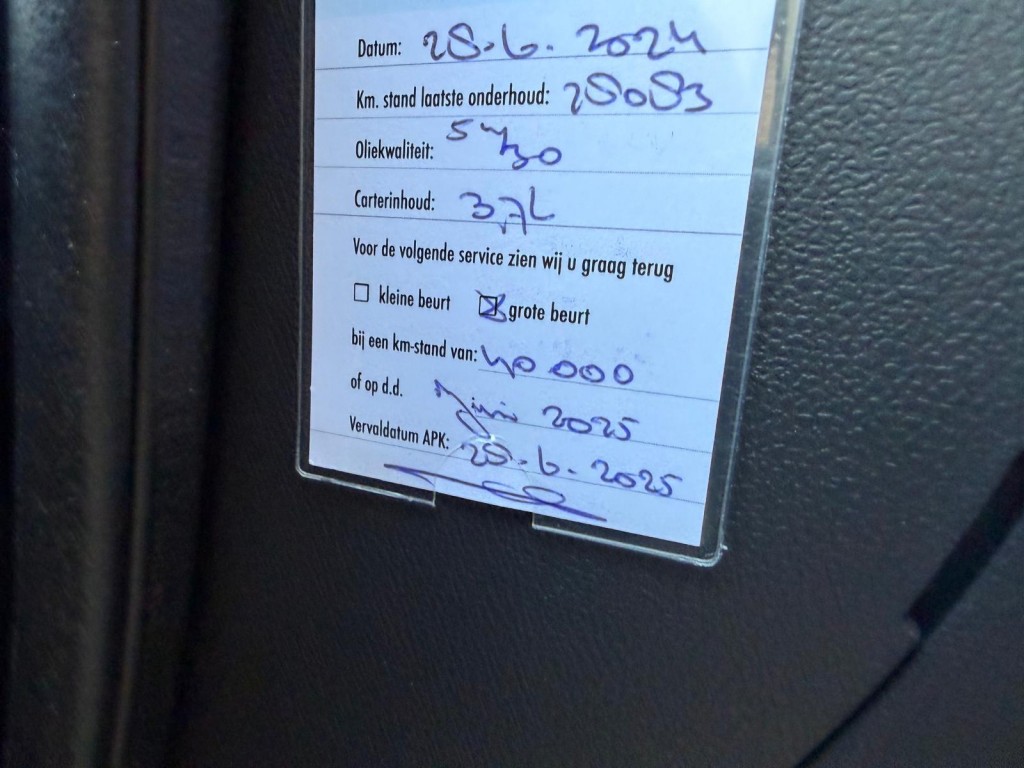 Datum: 28.6.2024
Km. stand laatste onderhoud: 28083
Oliekwaliteit: 5w/30
Carterinhoud: 3,7L
Voor de volgende service zien wij u graag terug
☐ kleine beurt ☒ grote beurt
bij een km-stand van: 40 000
of op d.d. juni 2025
Vervaldatum APK: 28.6.2025